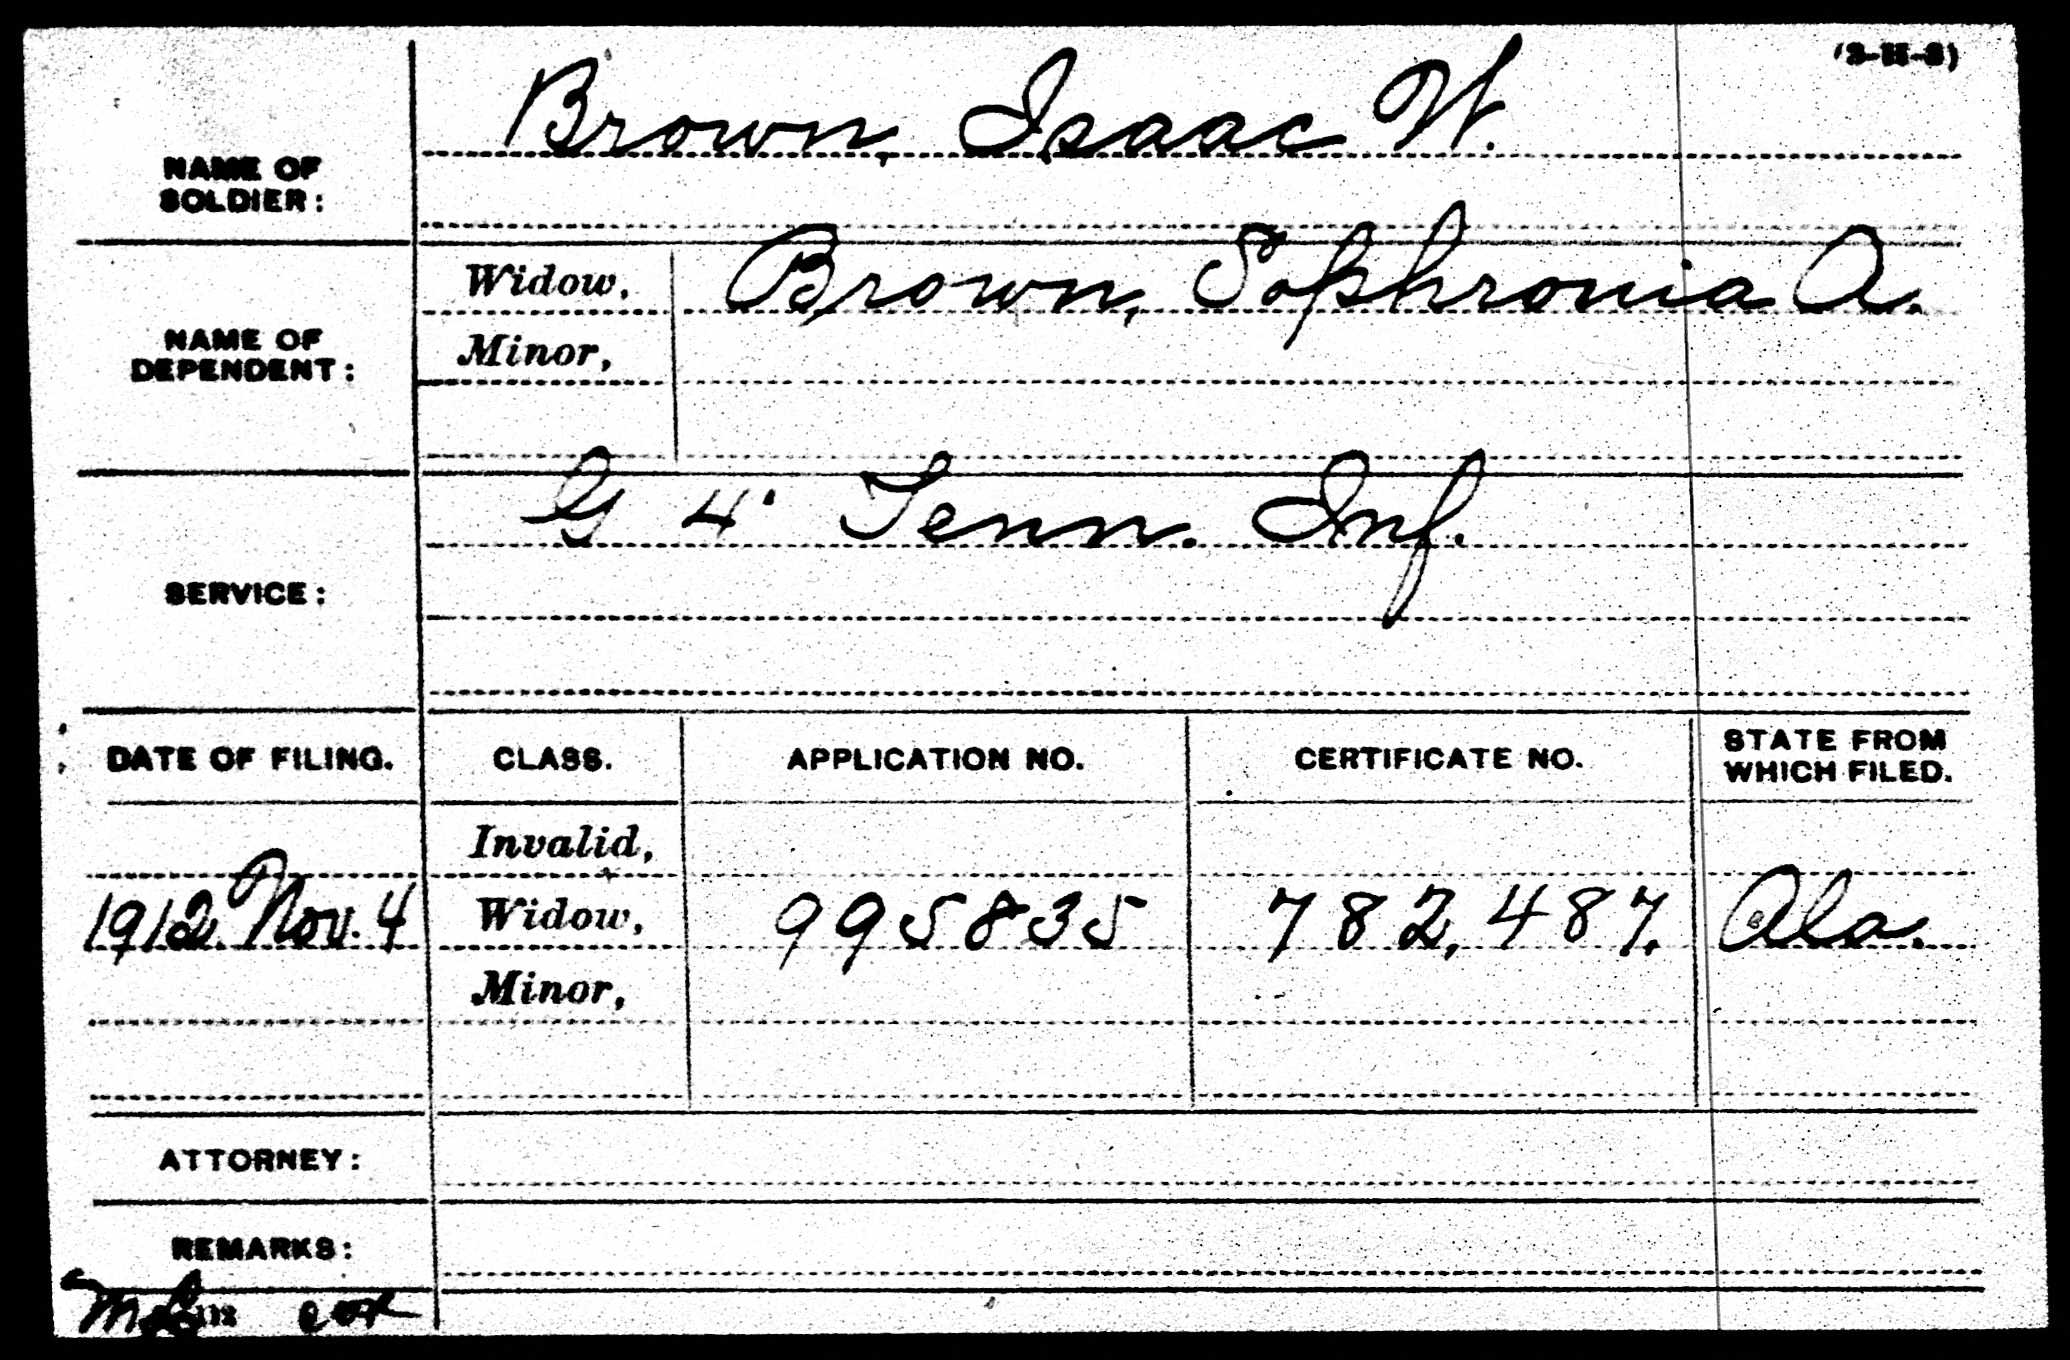 (3-H-8)
NAME OF
SOLDIER:
Brown, Isaac W.
NAME OF
DEPENDENT:
Widow,
Brown, Sophronia A.
Minor,
SERVICE:
G 4" Tenn. Inf.
DATE OF FILING.
CLASS.
APPLICATION NO.
CERTIFICATE NO.
STATE FROM
WHICH FILED.
Invalid,
1912 Nov. 4
Widow,
995835
782,487.
Ala.
Minor,
ATTORNEY:
REMARKS:
cox